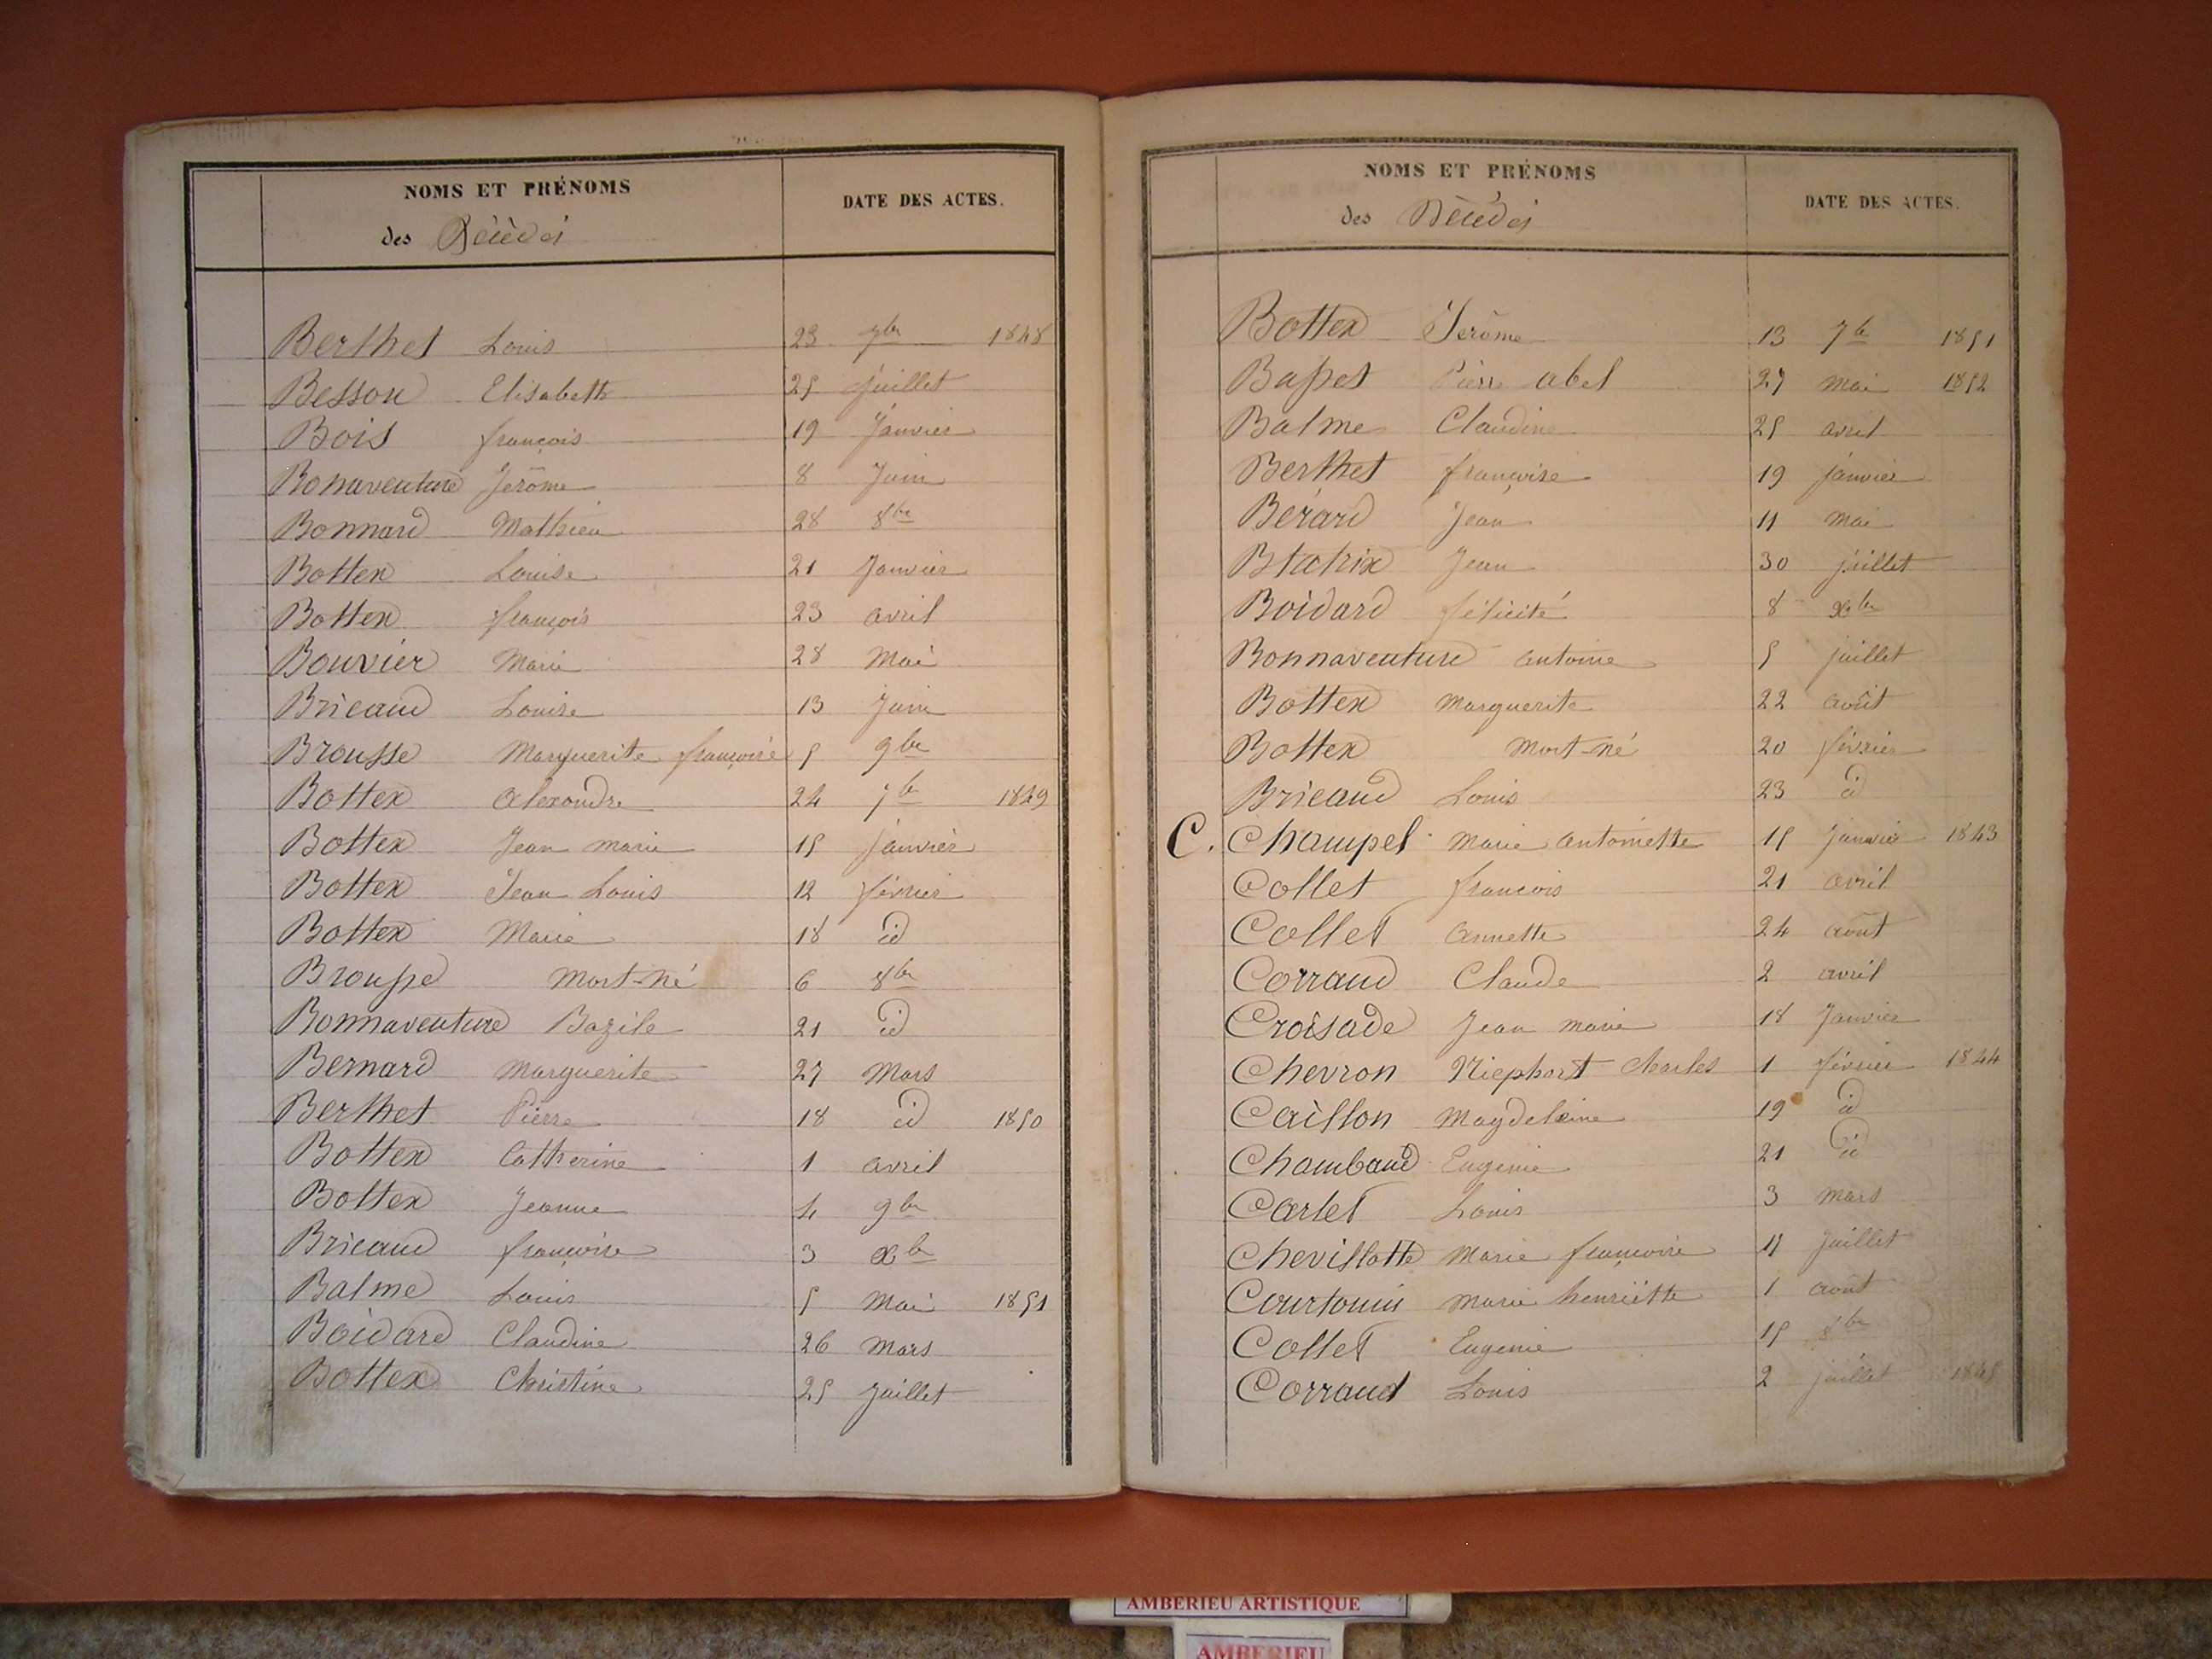 NOMS ET PRÉNOMS
des Décédés
DATE DES ACTES.
Berthet Louis 23 7bre 1848
Besson Elisabeth 25 Juillet
Bois françois 19 Janvier
Bonaventure Jérôme 8 Juin
Bonnard Mathieu 28 8bre
Bottex Louise 21 Janvier
Bottex françois 23 avril
Bouvier Marie 28 Mai
Bricaud Louise 13 Juin
Brousse Marguerite françoise 5 9bre
Bottex Alexandre 24 7bre 1849
Bottex Jean marie 15 Janvier
Bottex Jean Louis 12 février
Bottex Marie 18 id
Brousse Mort-né 6 8bre
Bonnaventure Bazile 21 id
Bernard Marguerite 27 Mars
Berthet Pierre 18 id 1850
Bottex Catherine 1 avril
Bottex Jeanne 4 9bre
Bricaud françoise 3 Xbre
Balme Louis 5 Mai 1851
Boidard Claudine 26 Mars
Bottex Christine 25 Juillet
NOMS ET PRÉNOMS
des Décédés
DATE DES ACTES.
Bottex Jerôme 13 7bre 1851
Basset Pierre abel 27 Mai 1852
Balme Claudine 25 avril
Berthet françoise 19 janvier
Bérard Jean 11 mai
Btatrix Jean 30 juillet
Boidard félicité 8 Xbre
Bonnaventure antoine 5 juillet
Bottex Marguerite 22 août
Bottex Mort-né 20 février
Bricaud Louis 23 id
C. Champel Marie antoinette 15 Janvier 1843
Collet françois 21 avril
Collet Annette 24 août
Corraud Claude 2 avril
Croisade Jean marie 18 Janvier
Chevron Niephort charles 1 février 1844
Caillon Magdeleine 19 id
Chambaud Eugenie 21 id
Carlet Louis 3 Mars
Chevillotte Marie françoise 11 Juillet
Courtouis Marie henriette 1 août
Collet Eugenie 15 8bre
Corraud Louis 2 juillet 1845
AMBERIEU ARTISTIQUE
AMBERIEU